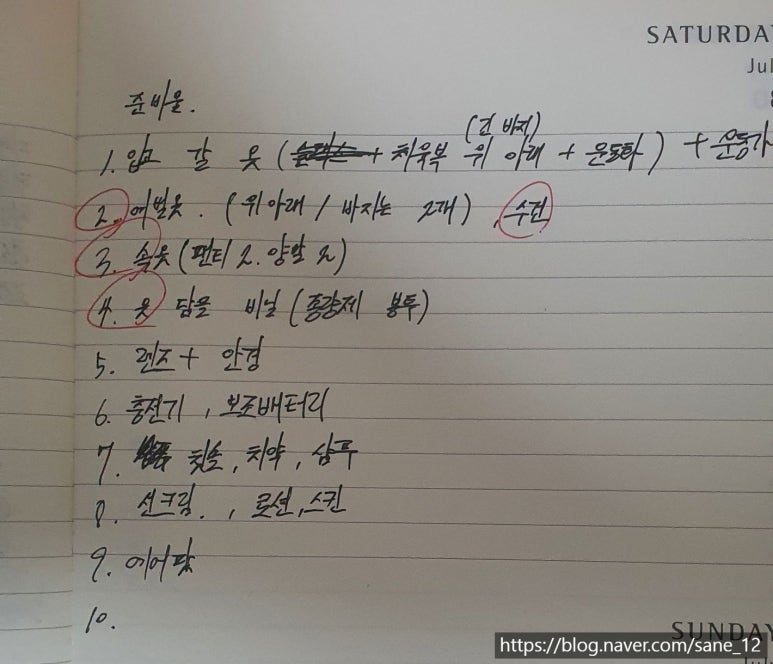 SATURDA
Jul
준비물.
(긴 바지)
1. 입고 갈 옷 ( + 체육복 위 아래 + 운동화) + 운동가
2. 여벌옷. (위아래 / 바지는 2개), 수건
3. 속옷 (팬티 2. 양말 2)
4. 옷 담을 비닐 (종량제 봉투)
5. 렌즈 + 안경
6. 충전기, 보조배터리
7. 칫솔, 치약, 샴푸
8. 선크림. , 로션, 스킨
9. 에어팟
10.
SUNDAY
https://blog.naver.com/sane_12